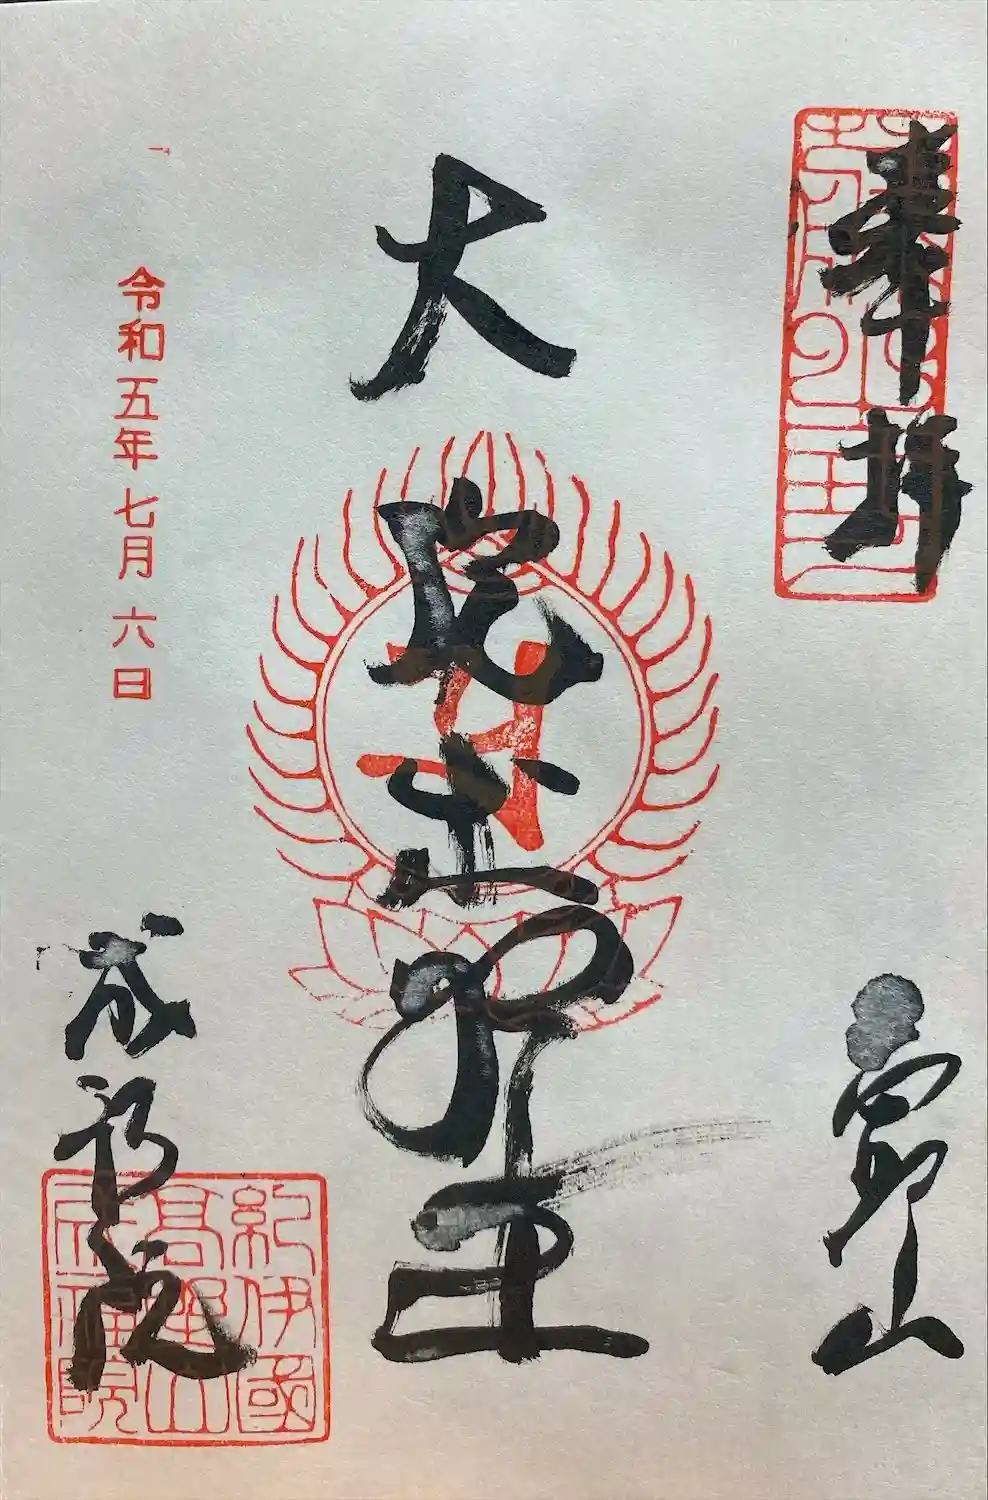 奉拝
高野山
大
明王
令和五年七月六日
成福院
紀伊國
高野山
成福院